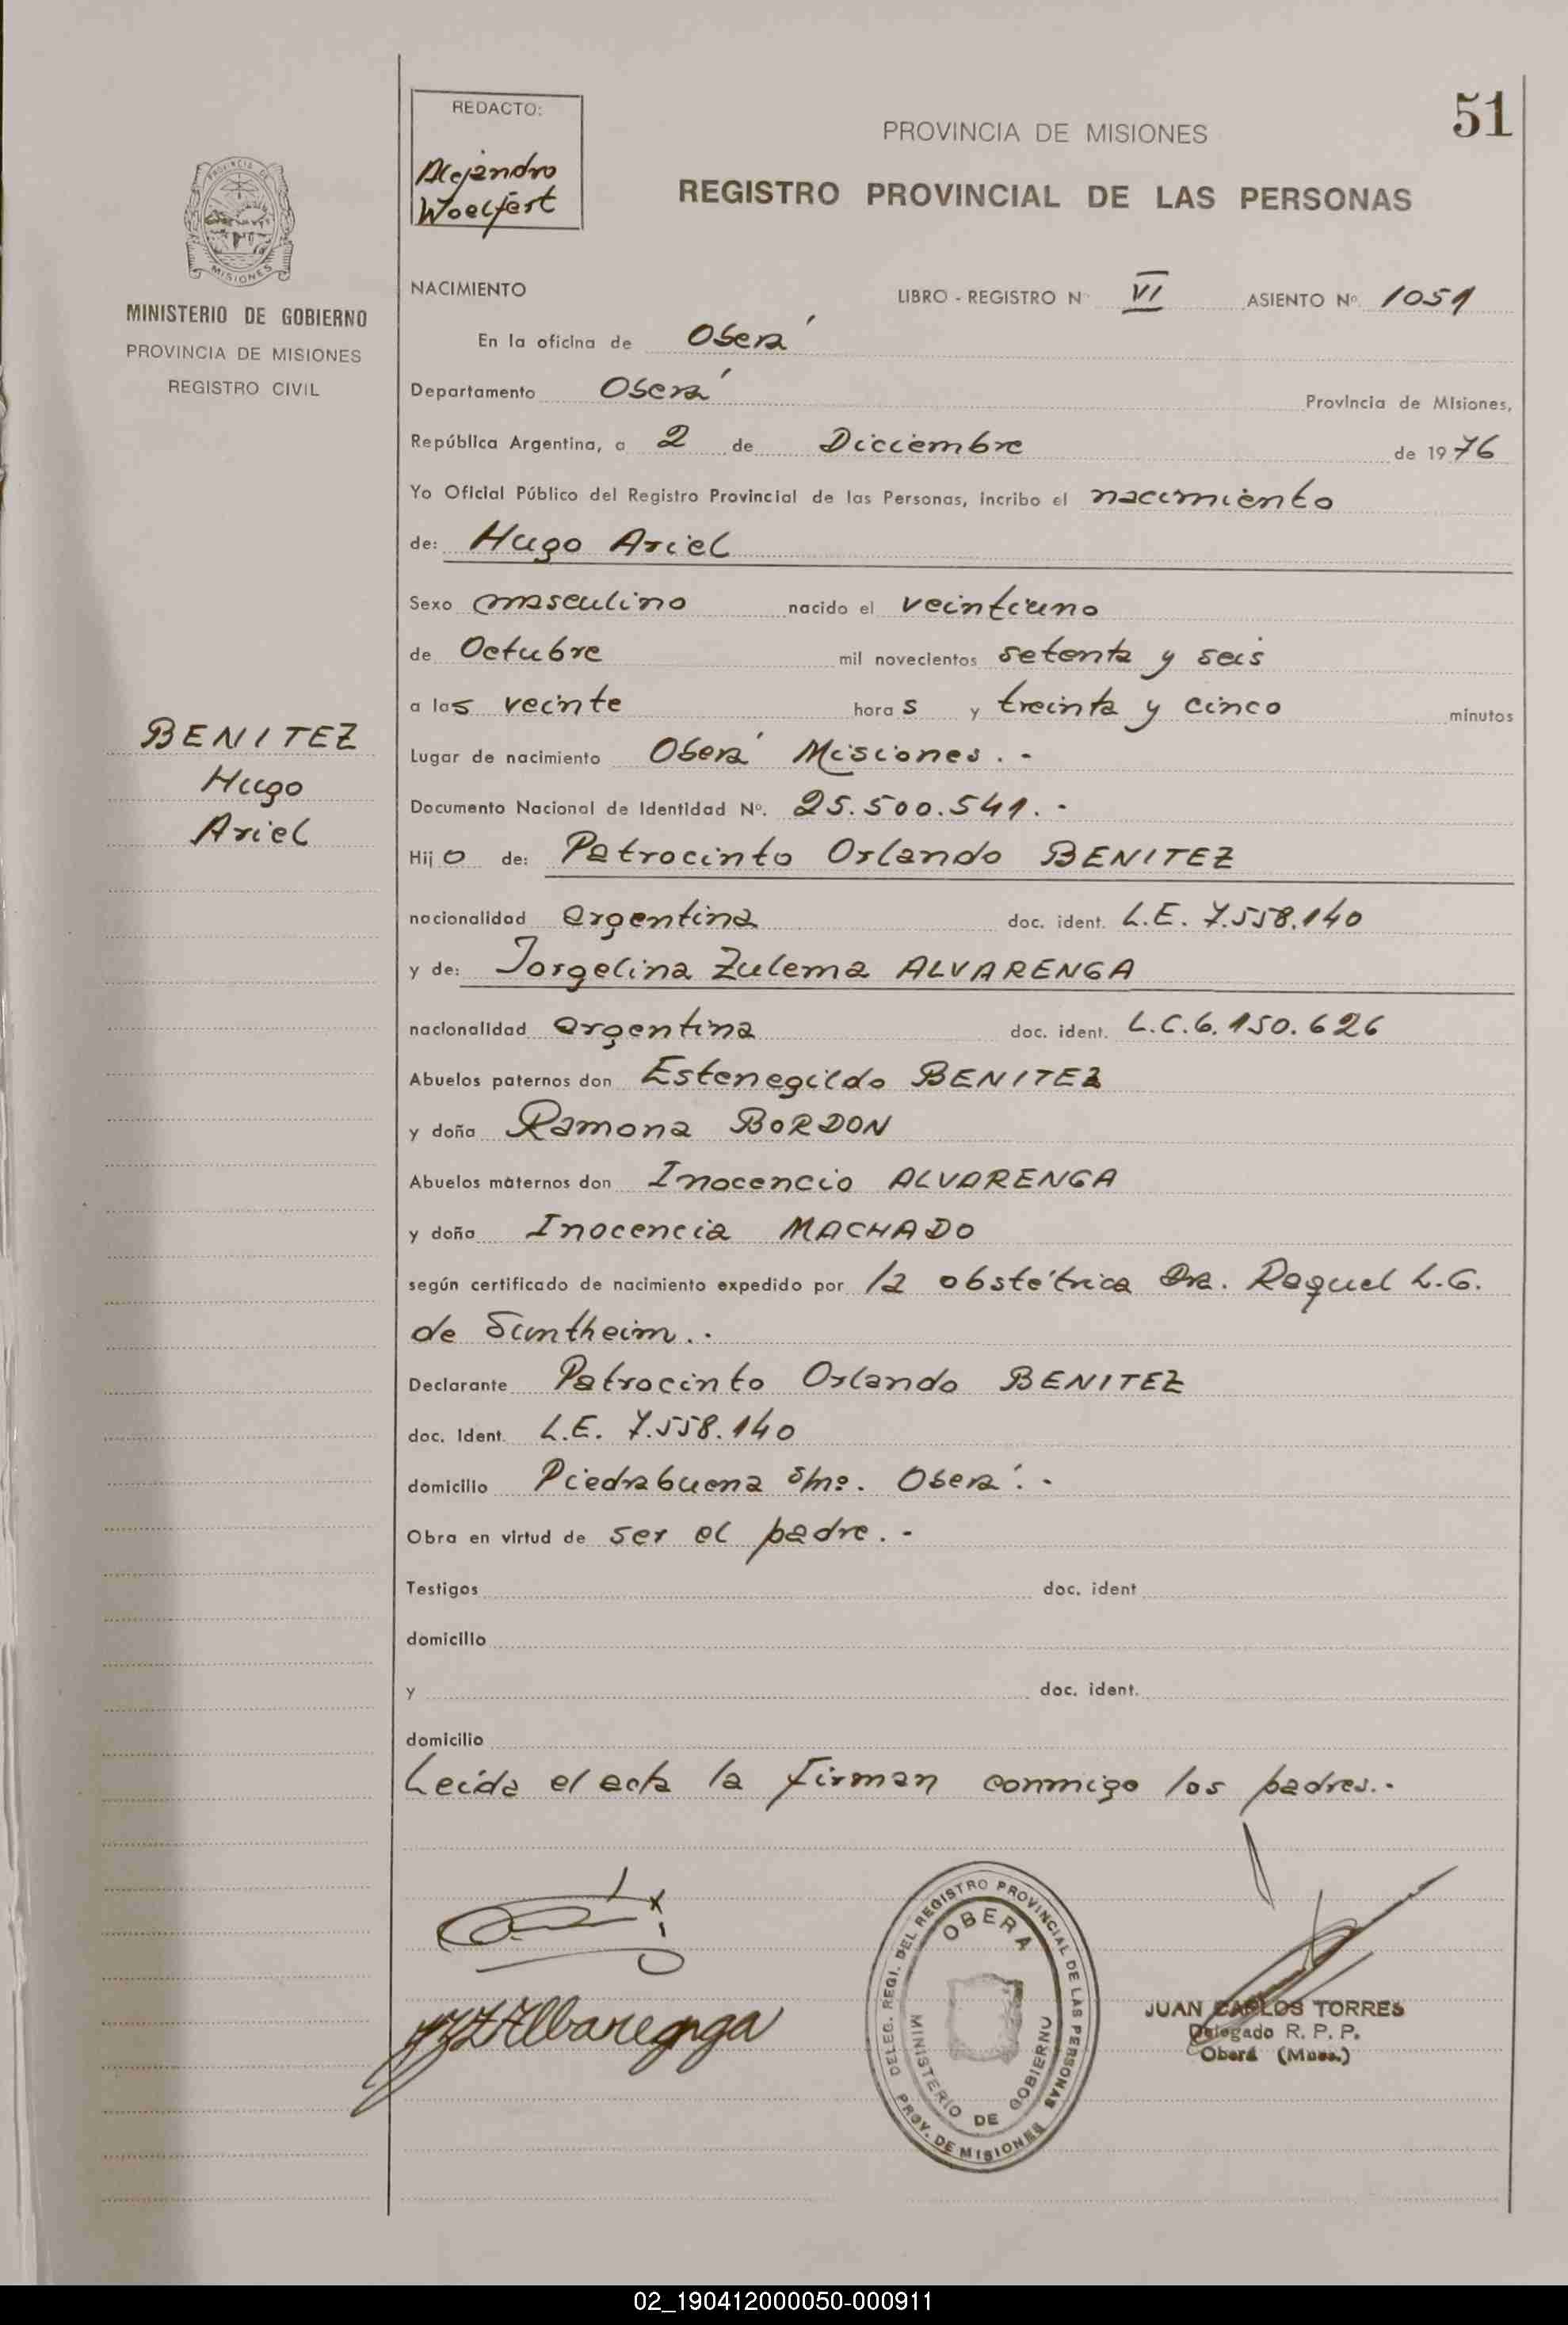 51
REDACTO:
Alejandro
Woelfert
PROVINCIA DE MISIONES
REGISTRO PROVINCIAL DE LAS PERSONAS
PROVINCIA DE
MISIONES
MINISTERIO DE GOBIERNO
PROVINCIA DE MISIONES
REGISTRO CIVIL
BENITEZ
Hugo
Ariel
NACIMIENTO LIBRO - REGISTRO N° VI ASIENTO Nº 1051
En la oficina de Oberá
Departamento Oberá Provincia de Misiones,
República Argentina, a 2 de Diciembre de 1976
Yo Oficial Público del Registro Provincial de las Personas, incribo el nacimiento
de: Hugo Ariel
Sexo masculino nacido el veintiuno
de Octubre mil novecientos setenta y seis
a las veinte horas y treinta y cinco minutos
Lugar de nacimiento Oberá Misiones.-
Documento Nacional de Identidad Nº. 25.500.541.-
Hijo de: Patrocinto Orlando BENITEZ
nacionalidad argentina doc. ident. L.E. 7.558.140
y de: Jorgelina Zulema ALVARENGA
nacionalidad argentina doc. ident. L.C. 6.150.626
Abuelos paternos don Estenegildo BENITEZ
y doña Ramona BORDON
Abuelos maternos don Inocencio ALVARENGA
y doña Inocencia MACHADO
según certificado de nacimiento expedido por la obstétrica Dra. Raquel L.G.
de Suntheim.-
Declarante Patrocinto Orlando BENITEZ
doc. Ident. L.E. 7.558.140
domicilio Piedrabuena s/nº. Oberá.-
Obra en virtud de ser el padre.-
Testigos doc. ident
domicilio
y doc. ident.
domicilio
Leída el acta la firman conmigo los padres.-
DELEG. REGI. DEL REGISTRO PROVINCIAL DE LAS PERSONAS
OBERA
MINISTERIO DE GOBIERNO
PROV. DE MISIONES
JUAN CARLOS TORRES
Delegado R. P. P.
Oberá (Mnes.)
02_190412000050-000911